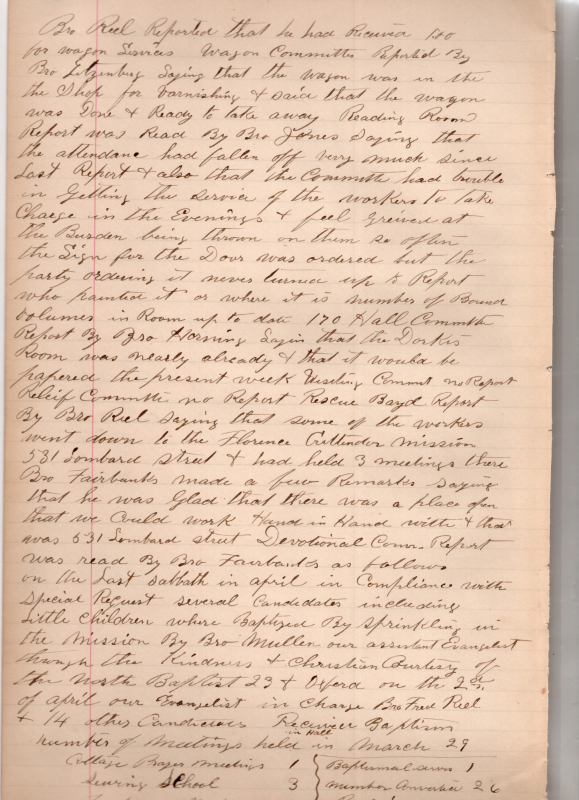 Bro Reel Reported that he had Received
for wagon Services Wagon Committee Reported By
Bro Litzenberg Saying that the wagon was in the
the Shop for varnishing & said that the wagon
was Done & Ready to take away Reading Room
Report was Read By Bro Jones Saying that
the attendanc had fallen off very much since
Last Report & also that the Committe had trouble
in Getting the service of the workers to take
Charge in the Evenings & feel Greived at
the Burden being thrown on them so often
the Sign for the Door was ordered but the
party ordering it never turned up to Report
who painted it or where it is number of Bound
volumes in Room up to date 170 Hall Committe
Report By Bro Horning Sayin that the
Room was nearly already & that it would be
papered the present week Visiting Commit no Report
Releif Committi no Report Rescue Report
By Bro Riel saying that some of the workers
went down to the Florence Crittinder mission
531 Lombard street & had held 3 meetings there
Bro Fairbanks made a few Remarks saying
that he was Glad that there was a place open
that we Could work Hand in Hand with & that
was 531 Lombard street Devotional Com. Report
was read By Bro Fairbanks as follows
on the Last sabbath in april in Compliance with
special Request several Candidates including
Little Children where Baptized By sprinkling in
the mission By Bro Mullen our assistent Evangelist
through the Kindness & Christian Courtesy of
the North Baptist 23 & Oxford on the
of april our Evangelist in Charge Bro Fred Riel
& 14 other Candidates Received Baptism
number of meetings held in Hall in march 29
Cottage Prayer meetings 1 Baptismal 1
Sewing School 3 number 26